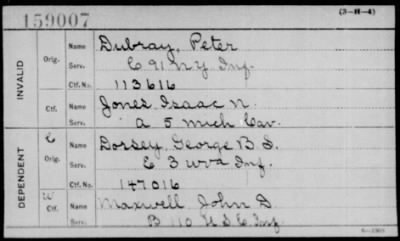 159007
(3-H-4)
INVALID
Orig. Name Dubray, Peter
Serv. E 91 N Y Inf.
Ctf. No. 113616
Ctf. Name Jones, Isaac N.
Serv. A 5 Mich Cav.
DEPENDENT
C
Orig. Name Dorsey, George B S.
Serv. E 3 W Va Inf.
Ctf. No. 147016
W
Ctf. Name Maxwell John D
Serv. B 110 U S C Inf